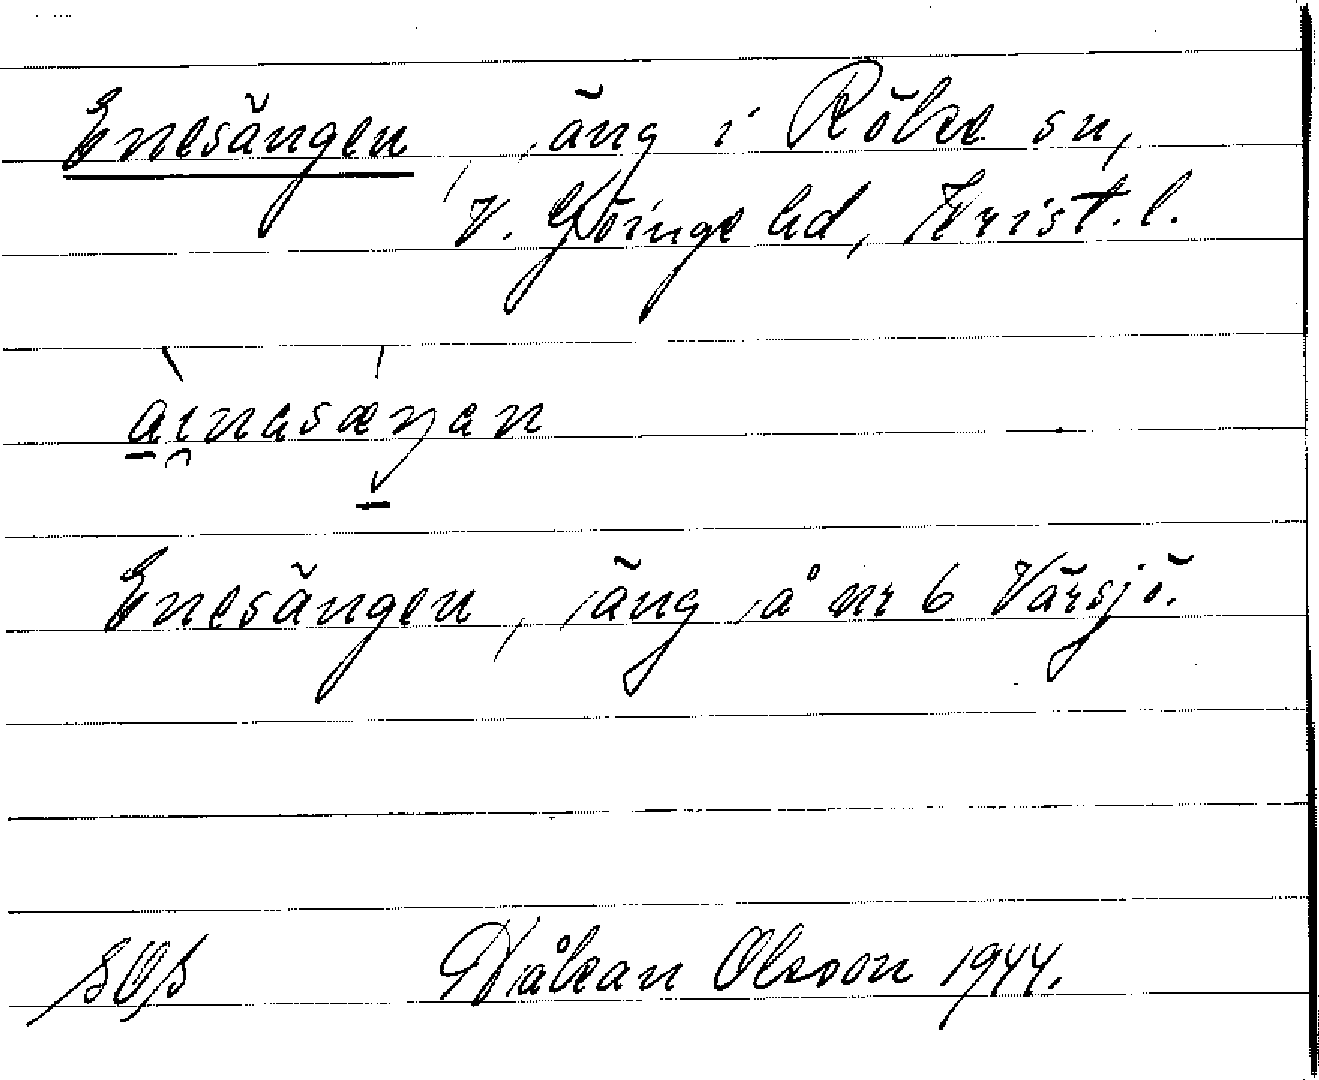 Enesängen, äng i Röke sn,
V. Göinge hd, Krist. l.
ainasæŋan
Enesängen, äng å nr 6 Värsjö.
Håkan Olsson 1944.